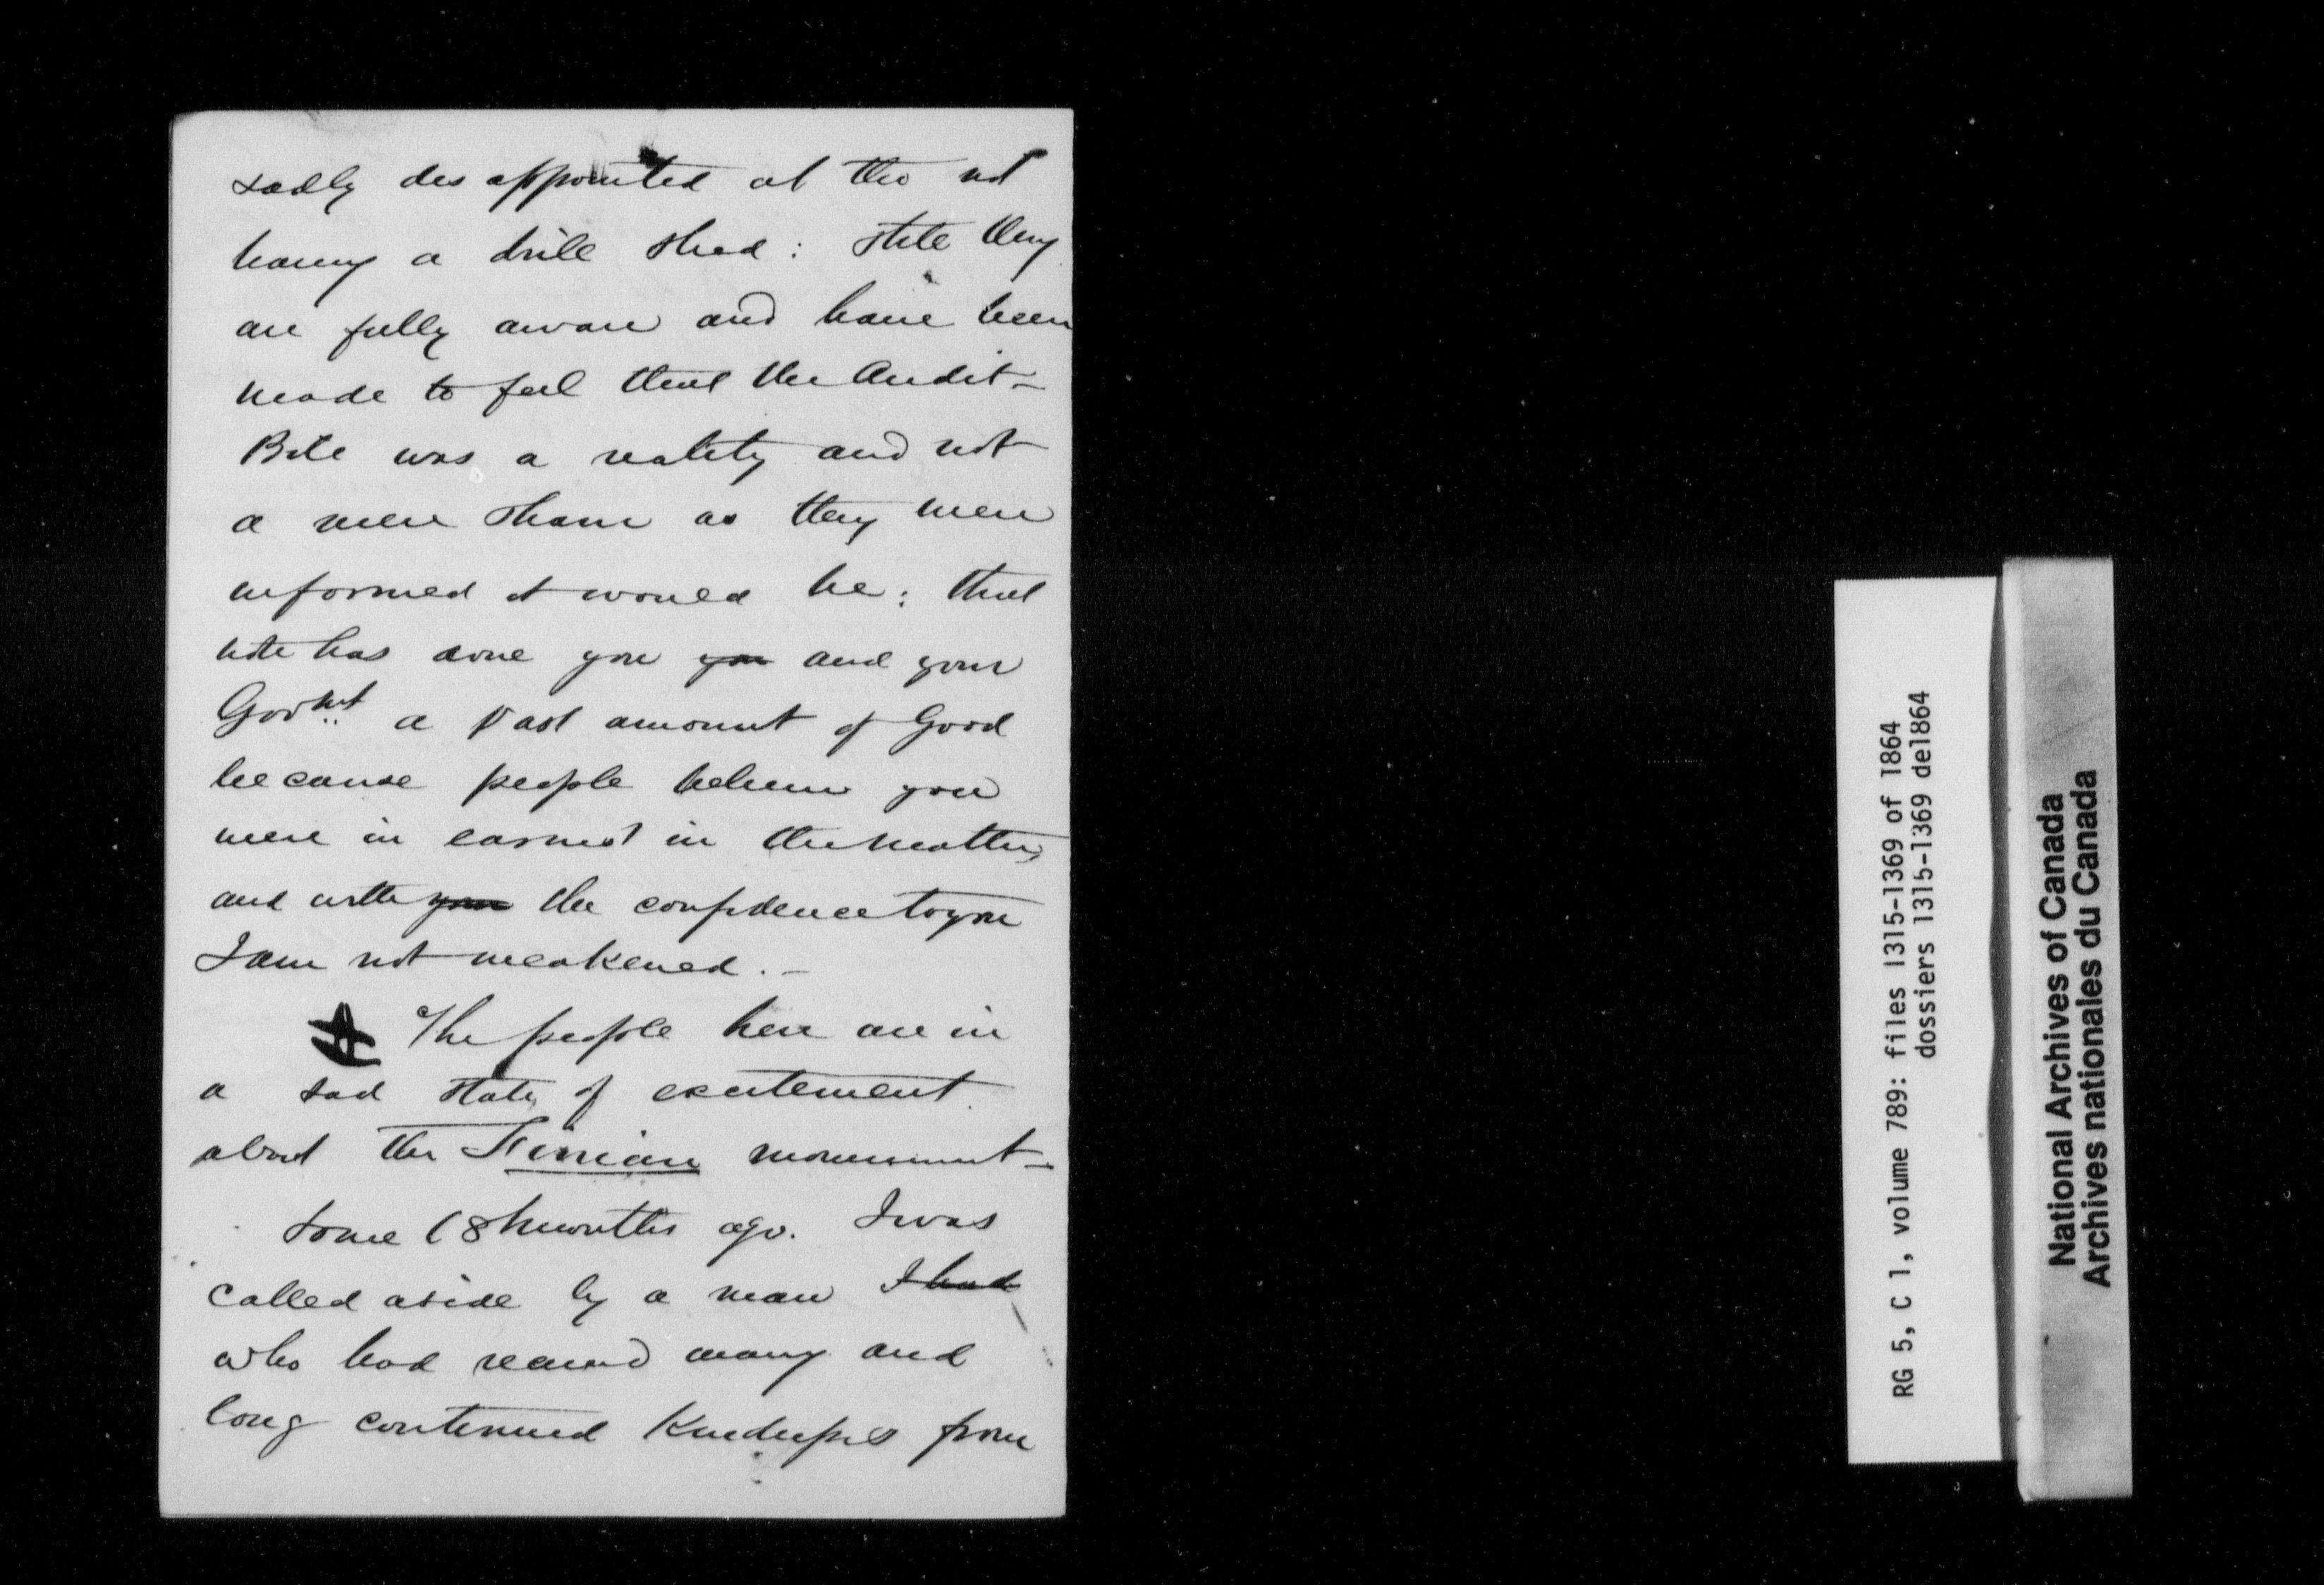 sadly disappointed at the not
having a drill shed: still they
are fully aware and have been
made to feel that the Audit-
Bill was a reality and not
a mere sham as they were
informed it would be: that
vote has done you you and your
Govmt a vast amount of Good
because people believe you
were in earnest in the matter,
and with your the confidence to you
I am not weakened.-
The people here are in
a sad state of excitement
about the Finian movement-
Some 18 months ago. I was
called aside by a man I had
who had received many and
long continued Kindness from
RG 5, C 1, volume 789: files 1315-1369 of 1864
dossiers 1315-1369 de1864
National Archives of Canada
Archives nationales du Canada